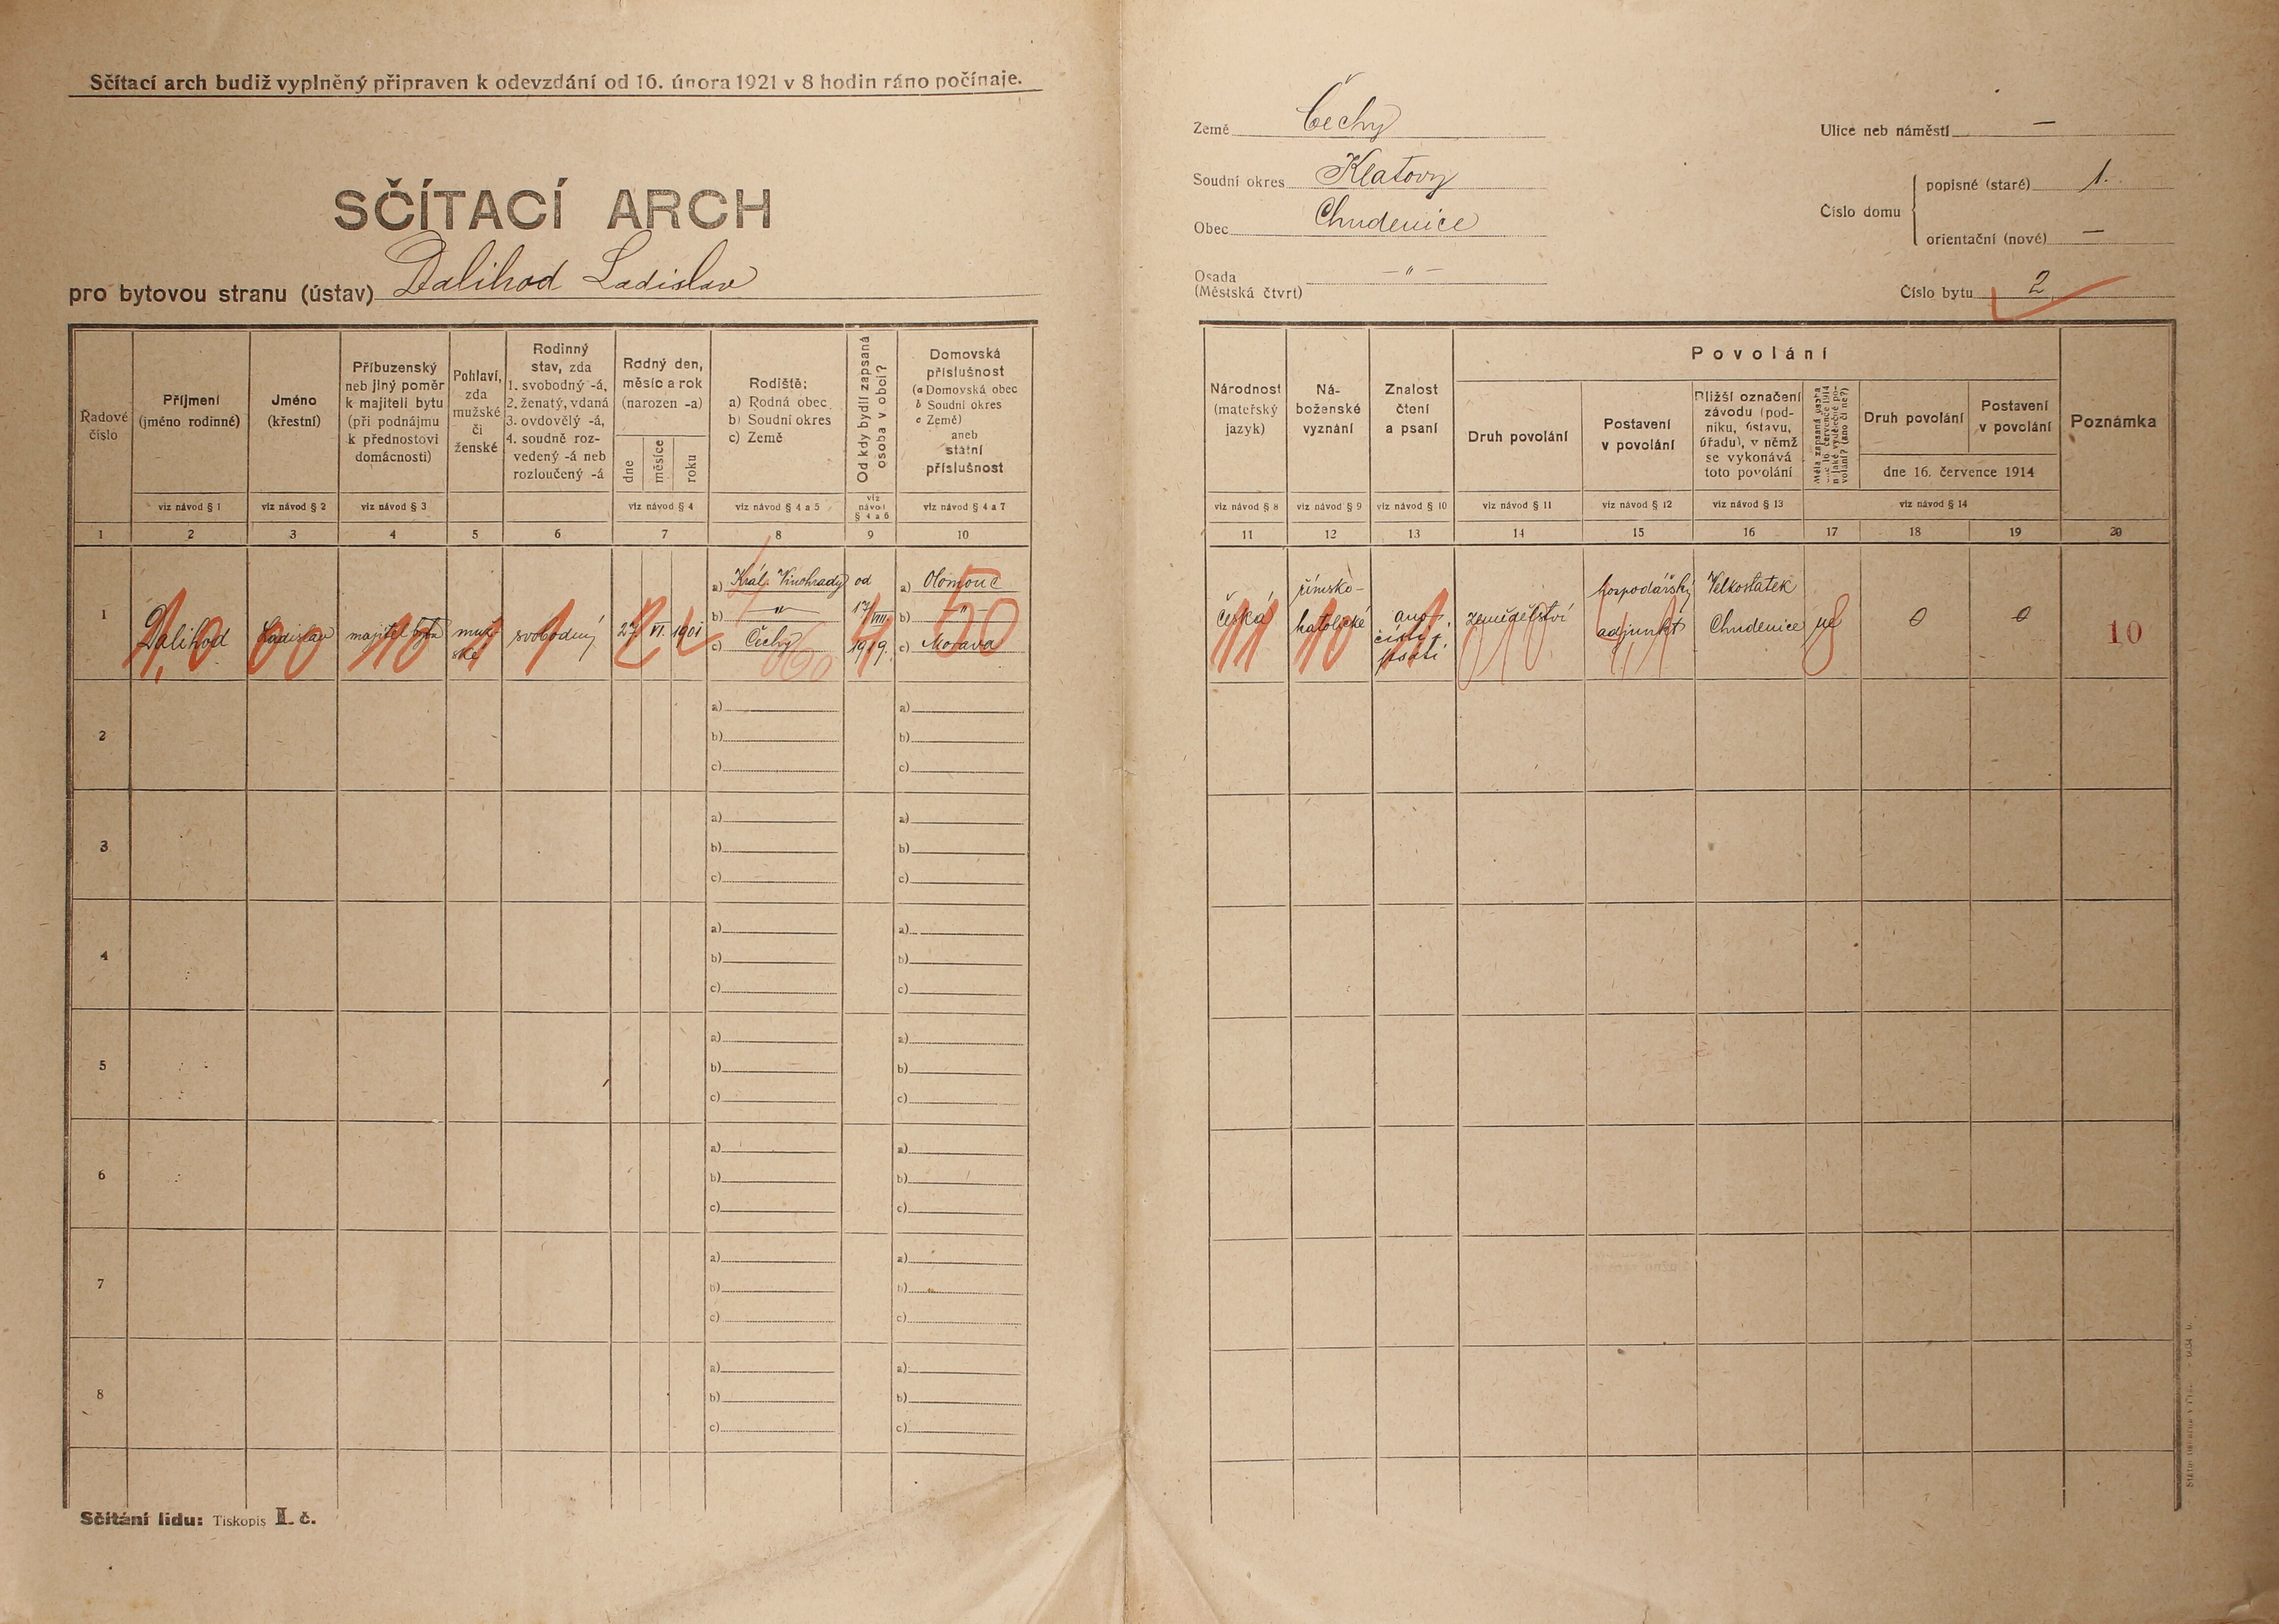 Sčítací arch budiž vyplněný připraven k odevzdání od 16. února 1921 v 8 hodin ráno počínaje.
SČÍTACÍ ARCH
pro bytovou stranu (ústav) Dalihod Ladislav
Země Čechy
Soudní okres Klatovy
Obec Chudenice
Osada
(Městská čtvrt) — „ —
Ulice neb náměstí —
Číslo domu
popisné (staré) 1.
orientační (nové) —
Číslo bytu 2
Řadové číslo
Příjmení (jméno rodinné)
Jméno (křestní)
Příbuzenský neb jiný poměr k majiteli bytu (při podnájmu k přednostovi domácnosti)
Pohlaví, zda mužské či ženské
Rodinný stav, zda 1. svobodný -á, 2. ženatý, vdaná 3. ovdovělý -á, 4. soudně rozvedený -á neb rozloučený -á
Rodný den, měsíc a rok (narozen -a)
dne
měsíce
roku
Rodiště:
a) Rodná obec
b) Soudní okres
c) Země
Od kdy bydlí zapsaná osoba v obci?
Domovská příslušnost
(a Domovská obec
b Soudní okres
c Země)
aneb
státní
příslušnost
viz návod § 1
viz návod § 2
viz návod § 3
viz návod § 4
viz návod § 4 a 5
viz návod § 4 a 6
viz návod § 4 a 7
1 2 3 4 5 6 7 8 9 10
Národnost (mateřský jazyk)
Náboženské vyznání
Znalost čtení a psaní
Povolání
Druh povolání
Postavení v povolání
Bližší označení závodu (podniku, ústavu, úřadu), v němž se vykonává toto povolání
Druh povolání
Postavení v povolání
dne 16. července 1914
Poznámka
viz návod § 8
viz návod § 9
viz návod § 10
viz návod § 11
viz návod § 12
viz návod § 13
viz návod § 14
11 12 13 14 15 16 17 18 19 20
1
Dalihod
Ladislav
majitel bytu
mužské
svobodný
27. VI. 1901
a) Král. Vinohrady
b) — „ —
c) Čechy
od
17/VIII.
1919.
a) Olomouc
b) — „ —
c) Morava
česká
římsko-
katolické
ano,
čísti i
psáti
zemědělství
hospodářský
adjunkt
Velkostatek
Chudenice
ne
0
0
10
2
a)
b)
c)
a)
b)
c)
3
a)
b)
c)
a)
b)
c)
4
a)
b)
c)
a)
b)
c)
5
a)
b)
c)
a)
b)
c)
6
a)
b)
c)
a)
b)
c)
7
a)
b)
c)
a)
b)
c)
8
a)
b)
c)
a)
b)
c)
Sčítání lidu: Tiskopis II. č.